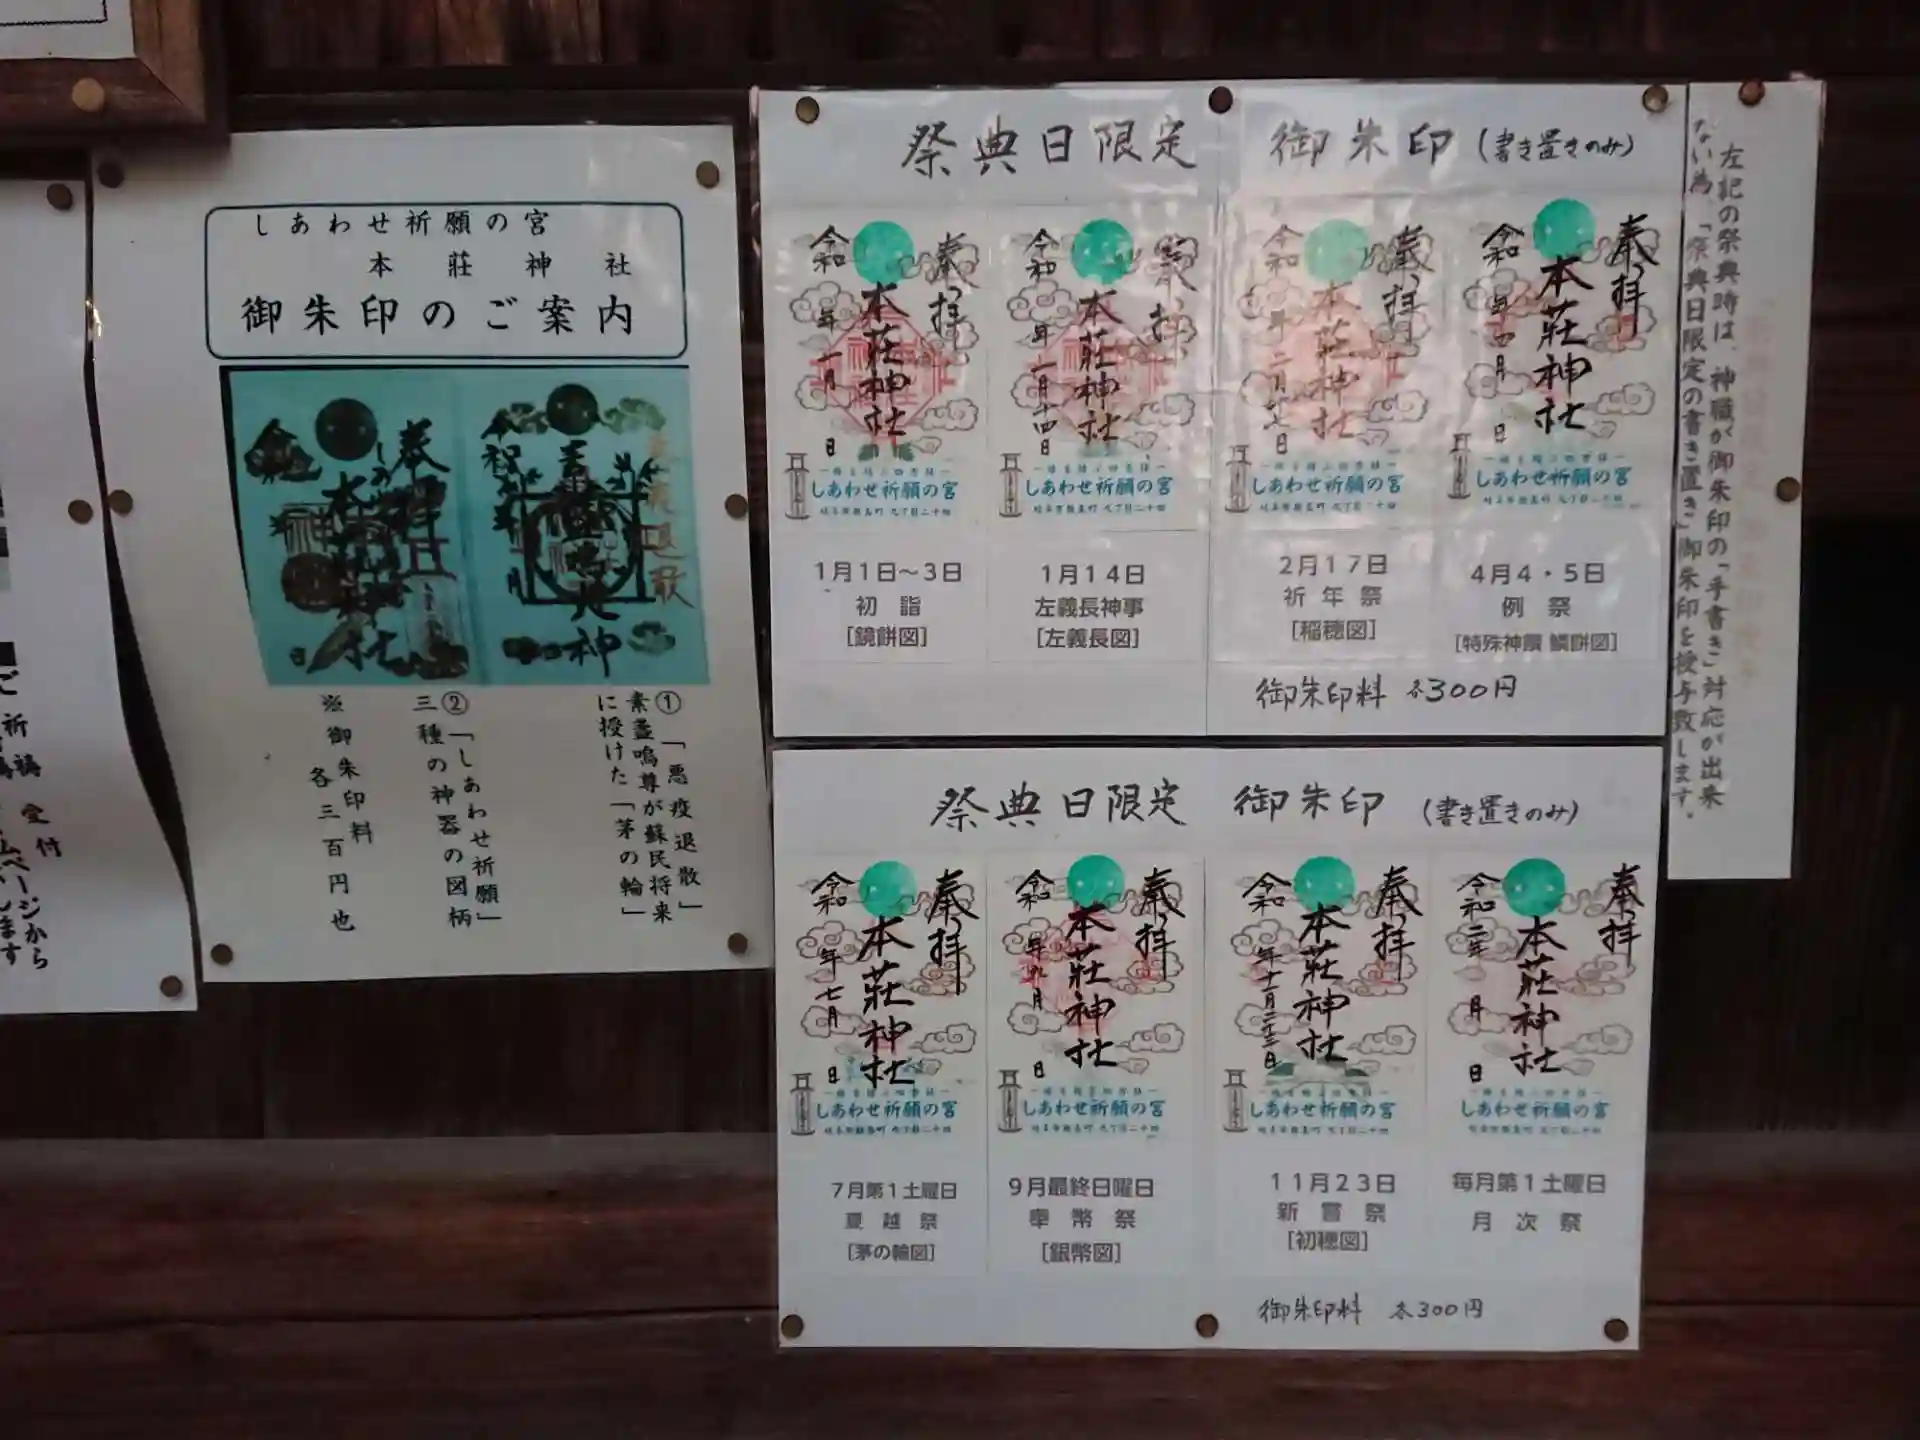 しあわせ祈願の宮
本荘神社
御朱印のご案内
①「悪疫退散」
素盞嗚尊が蘇民将来
に授けた「茅の輪」
②「しあわせ祈願」
三種の神器の図柄
※御朱印料
各三百円也
祭典日限定 御朱印(書き置きのみ)
奉拝
本荘神社
令和 年一月 日
しあわせ祈願の宮
1月1日～3日
初詣
[鏡餅図]
奉拝
本荘神社
令和 年一月十四日
しあわせ祈願の宮
1月14日
左義長神事
[左義長図]
奉拝
本荘神社
令和 年二月十七日
しあわせ祈願の宮
2月17日
祈年祭
[稲穂図]
奉拝
本荘神社
令和 年四月 日
しあわせ祈願の宮
4月4・5日
例祭
[特殊神饌 鱗餅図]
御朱印料 各300円
左記の祭典時は、神職が御朱印の「手書き」対応が出来
ない為、「祭典日限定の書き置き」御朱印を授与致します。
祭典日限定 御朱印(書き置きのみ)
奉拝
本荘神社
令和 年七月 日
しあわせ祈願の宮
7月第1土曜日
夏越祭
[茅の輪図]
奉拝
本荘神社
令和 年九月 日
しあわせ祈願の宮
9月最終日曜日
奉幣祭
[銀幣図]
奉拝
本荘神社
令和 年十一月二十三日
しあわせ祈願の宮
11月23日
新嘗祭
[初穂図]
奉拝
本荘神社
令和二年 月 日
しあわせ祈願の宮
毎月第1土曜日
月次祭
御朱印料 各300円